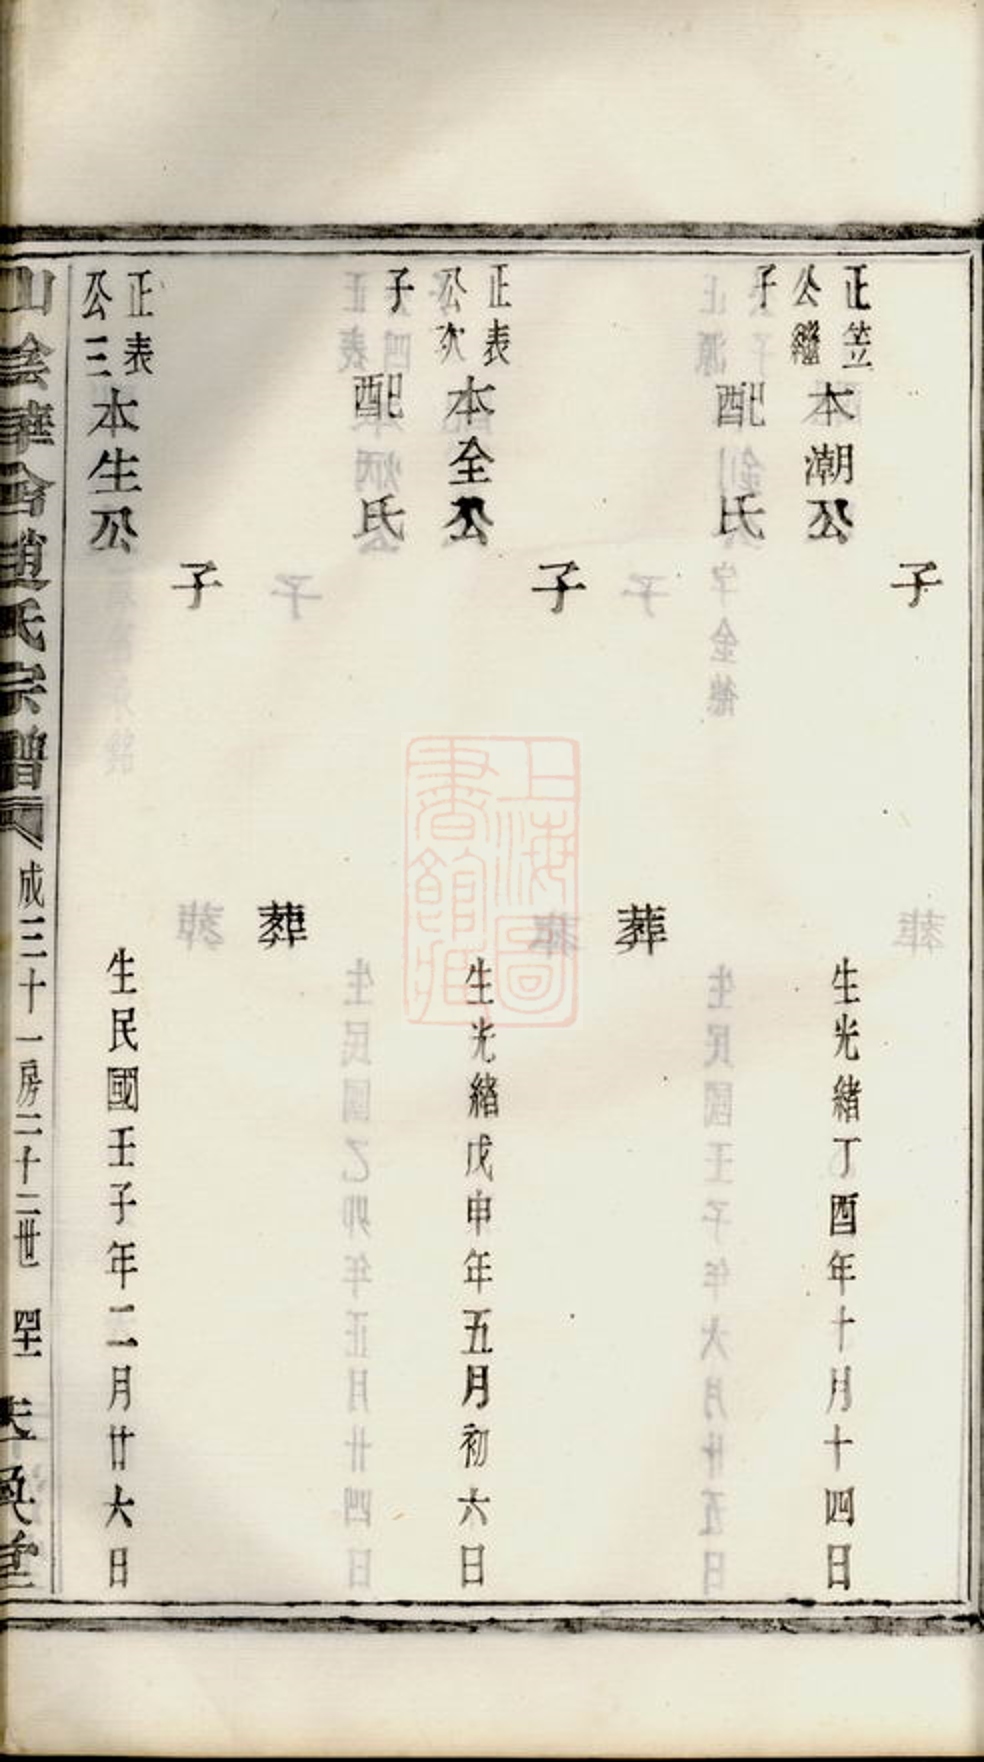 子
正笠
公繼
子
本潮公
生光緒丁酉年十月十四日
配
氏
葬
子
正表
公次
子
本全公
生光緒戊申年五月初六日
配
氏
葬
子
正表
公三
本生公
生民國壬子年二月廿六日
山陰華舍趙氏宗譜
成三十一房二十二世
上海圖書館藏